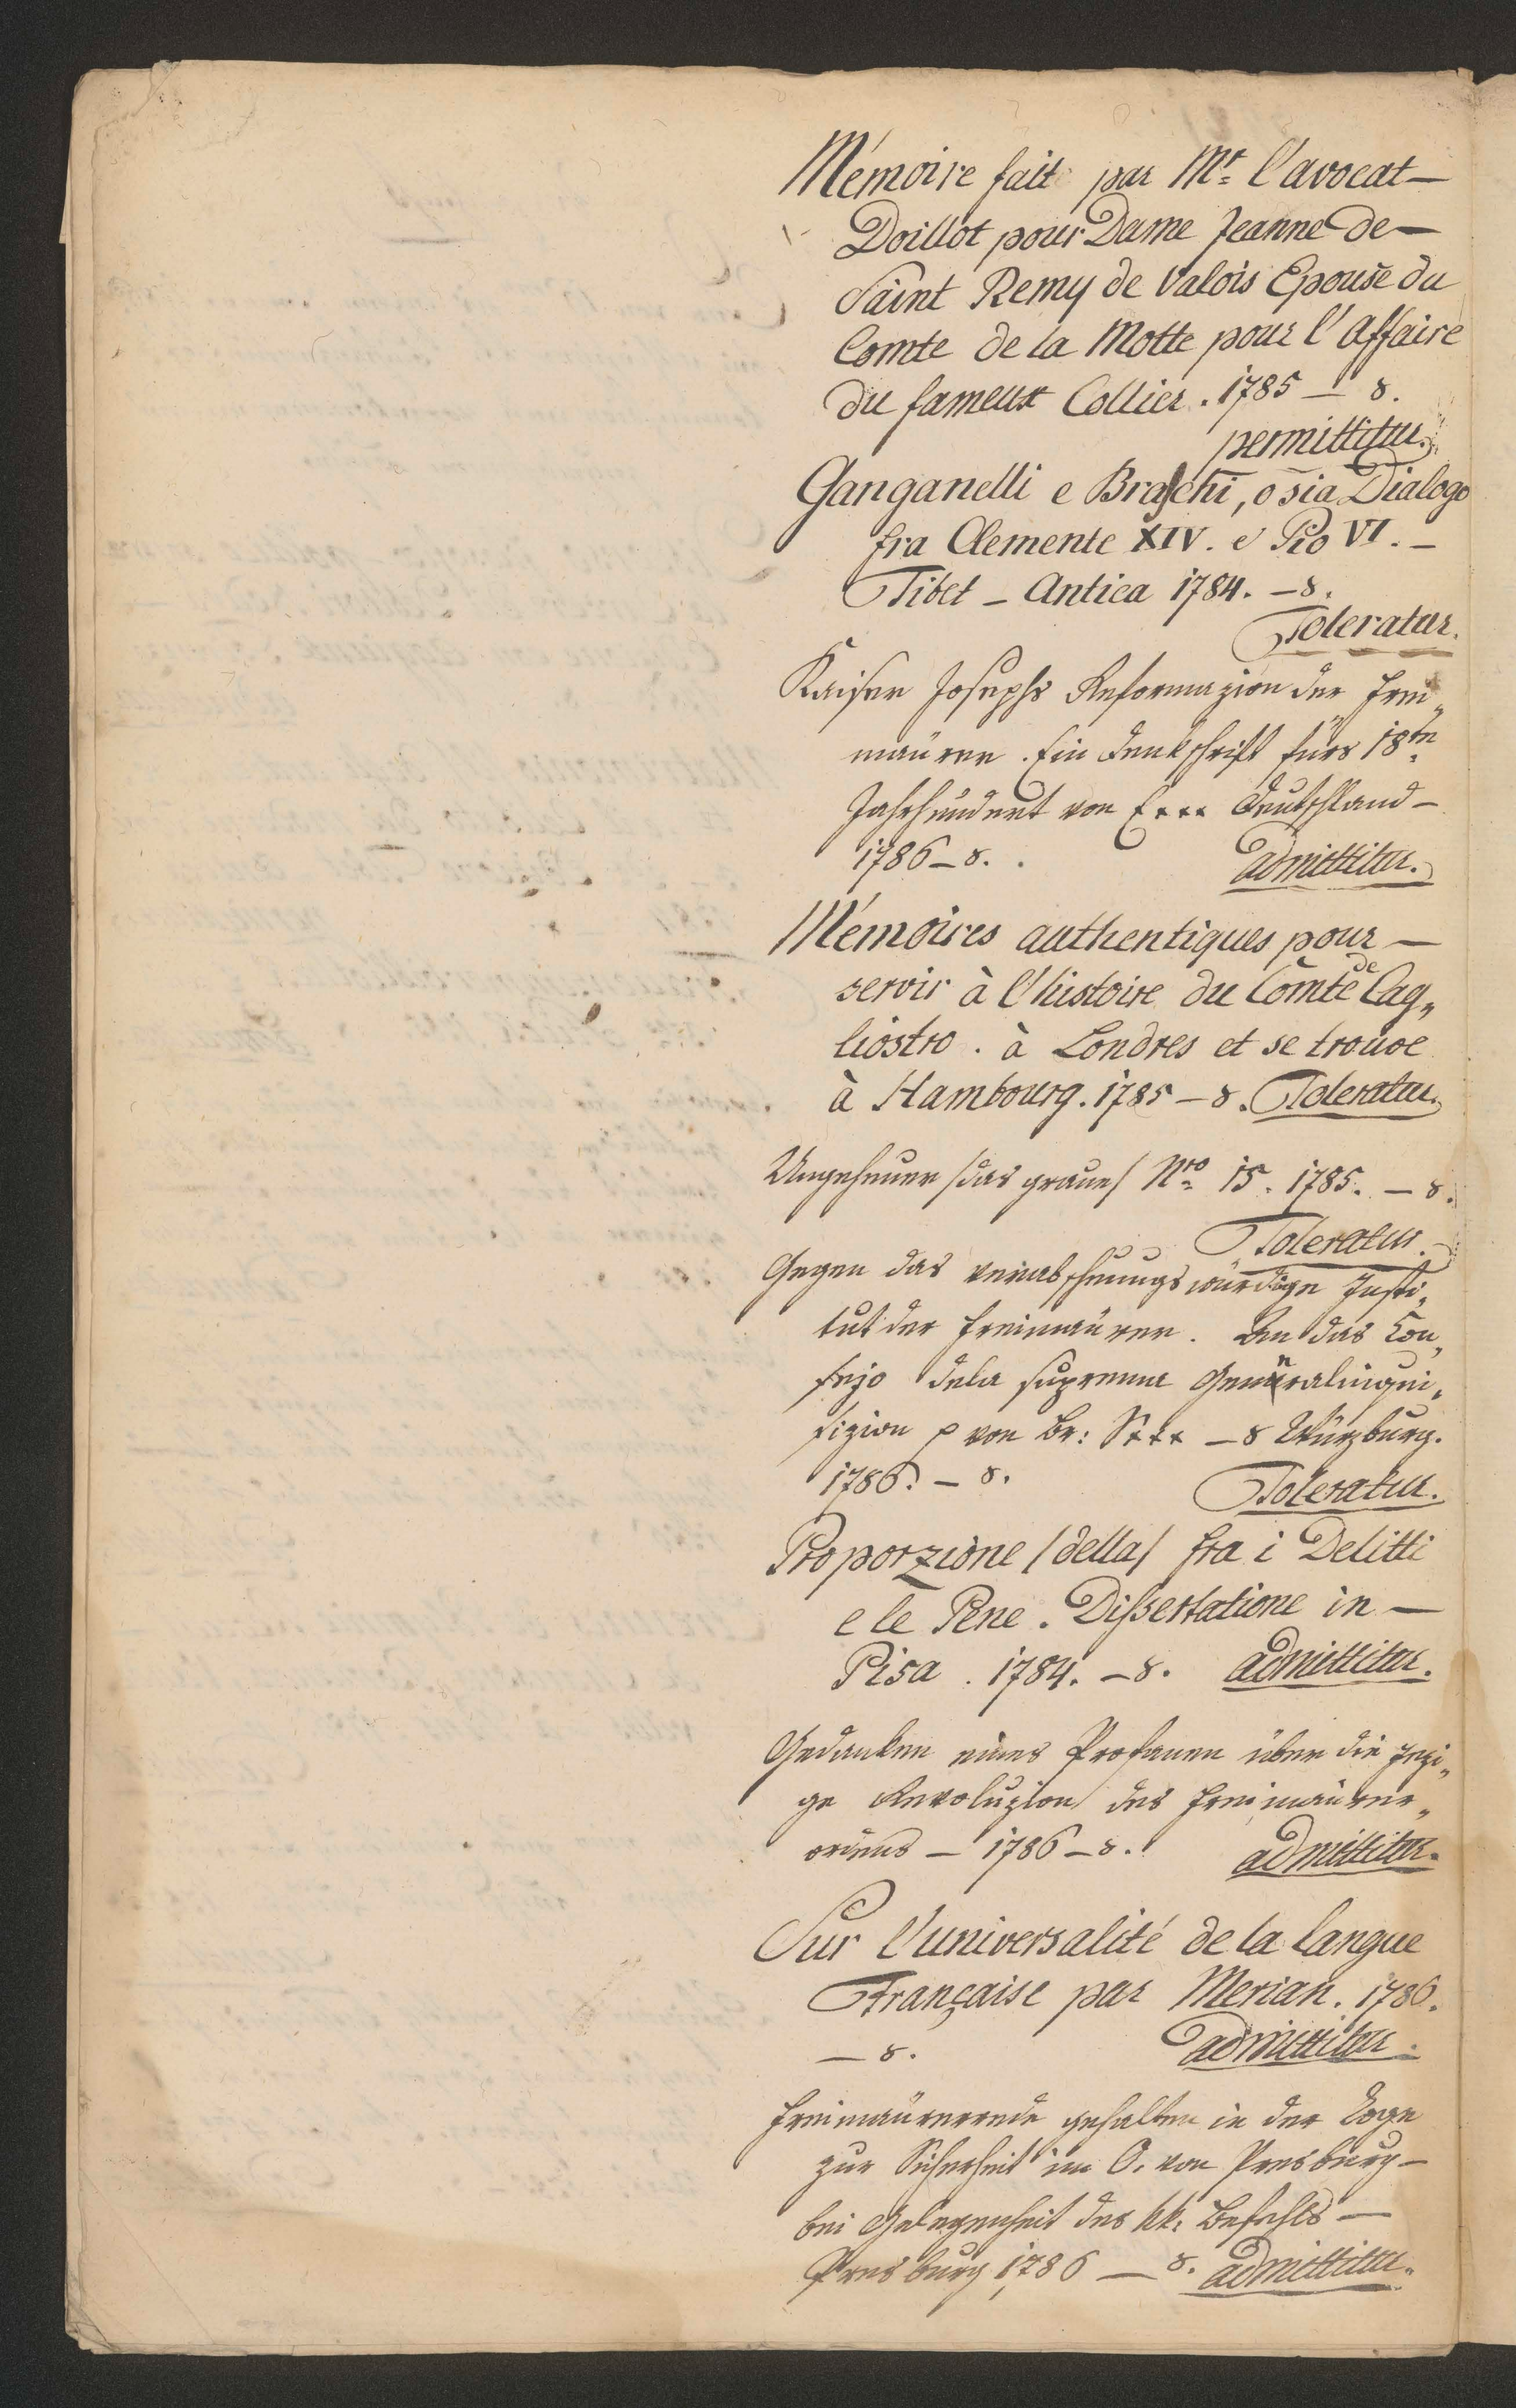 Mémoire fait par Mr. l'avocat —
Doillot pour Dame Jeanne de —
Saint Remy de Valois Epouse du
Comte de la Motte pour l'Affaire
du fameux Collier. 1785 — 8.
permittitur.
Ganganelli e Braschi, o sia Dialogo
fra Clemente XIV. e Pio VI. —
Tibet — Antica 1784. — 8.
Toleratur.
Kaiser Josephs Reformazion der Frei„
maürer. Ein Denkschrift fürs 18te
Jahrhundert von E*** Deutschland —
1786 — 8.. admittitur.
Mémoires authentiques pour —
servir à l'histoire du Comte de Cag„
liostro. à Londres et se trouve
à Hambourg. 1785 — 8. Toleratur.
Ungeheuer /das graue/ Nro 15. 1785. — 8.
Toleratur.
Gegen das verabscheuungswürdige Insti„
tut der Freimaürer. An das Con„
sejo dela suprema Generalinqui„
sizion p von Br: S*** — 8 Würzburg.
1786. — 8. Toleratur.
Proporzione /della/ fra i Delitti
e le Pene. Dissertatione in —
Pisa. 1784. — 8. admittitur.
Gedanken eines Profanen über die jezi„
ge Revoluzion des Freimaürer„
oriens — 1786 — 8. admittitur.
Sur l'universalité de la langue
Française par Merian. 1786.
— 8. admittitur.
Freimaürerrede gehalten in der Loge
zur Sicherheit im O. von Presburg —
bei Gelegenheit des kk. Befehls —
Presburg 1786 — 8. admittitur.